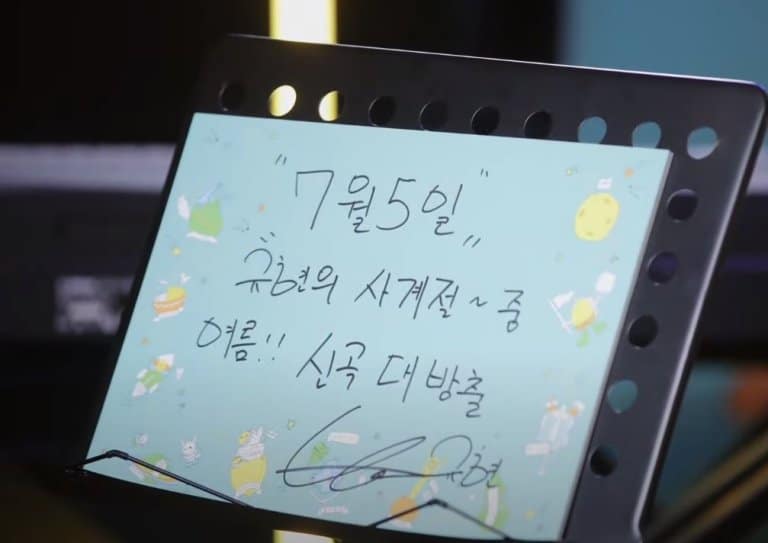 "7월5일"
규현의 사계절~중
여름!! 신곡 대방출
규현